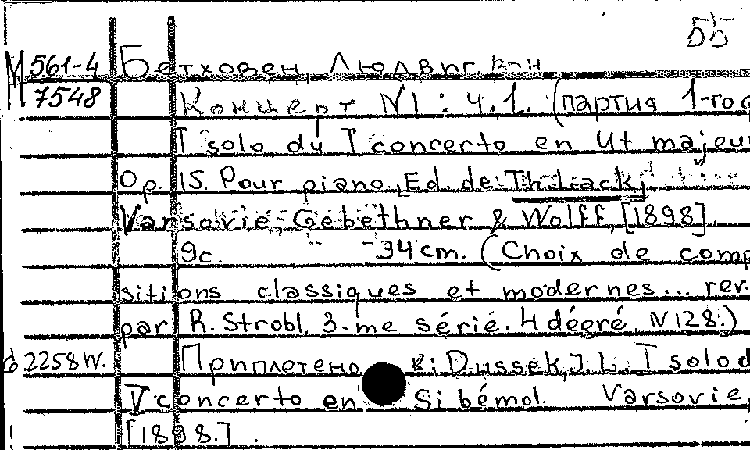 55
М 561-4 Бетховен, Людвиг ван
7548 Концерт N1: ч.1. (партия 1-го
I solo du I concerto en Ut majeur
Op. 15. Pour piano, Ed de
Varsovie, Gebethner & Wolff, [1898].
9с. 34 cm. (Choix de comp
sitions classiques et modernes... rev.
par R. Strobl. 3-me série. 4 dégré, N128.)
2258 W. Приплетено к: Dussek, J. L. I solo d
V concerto en Si bémol Varsovie,
[1898.].